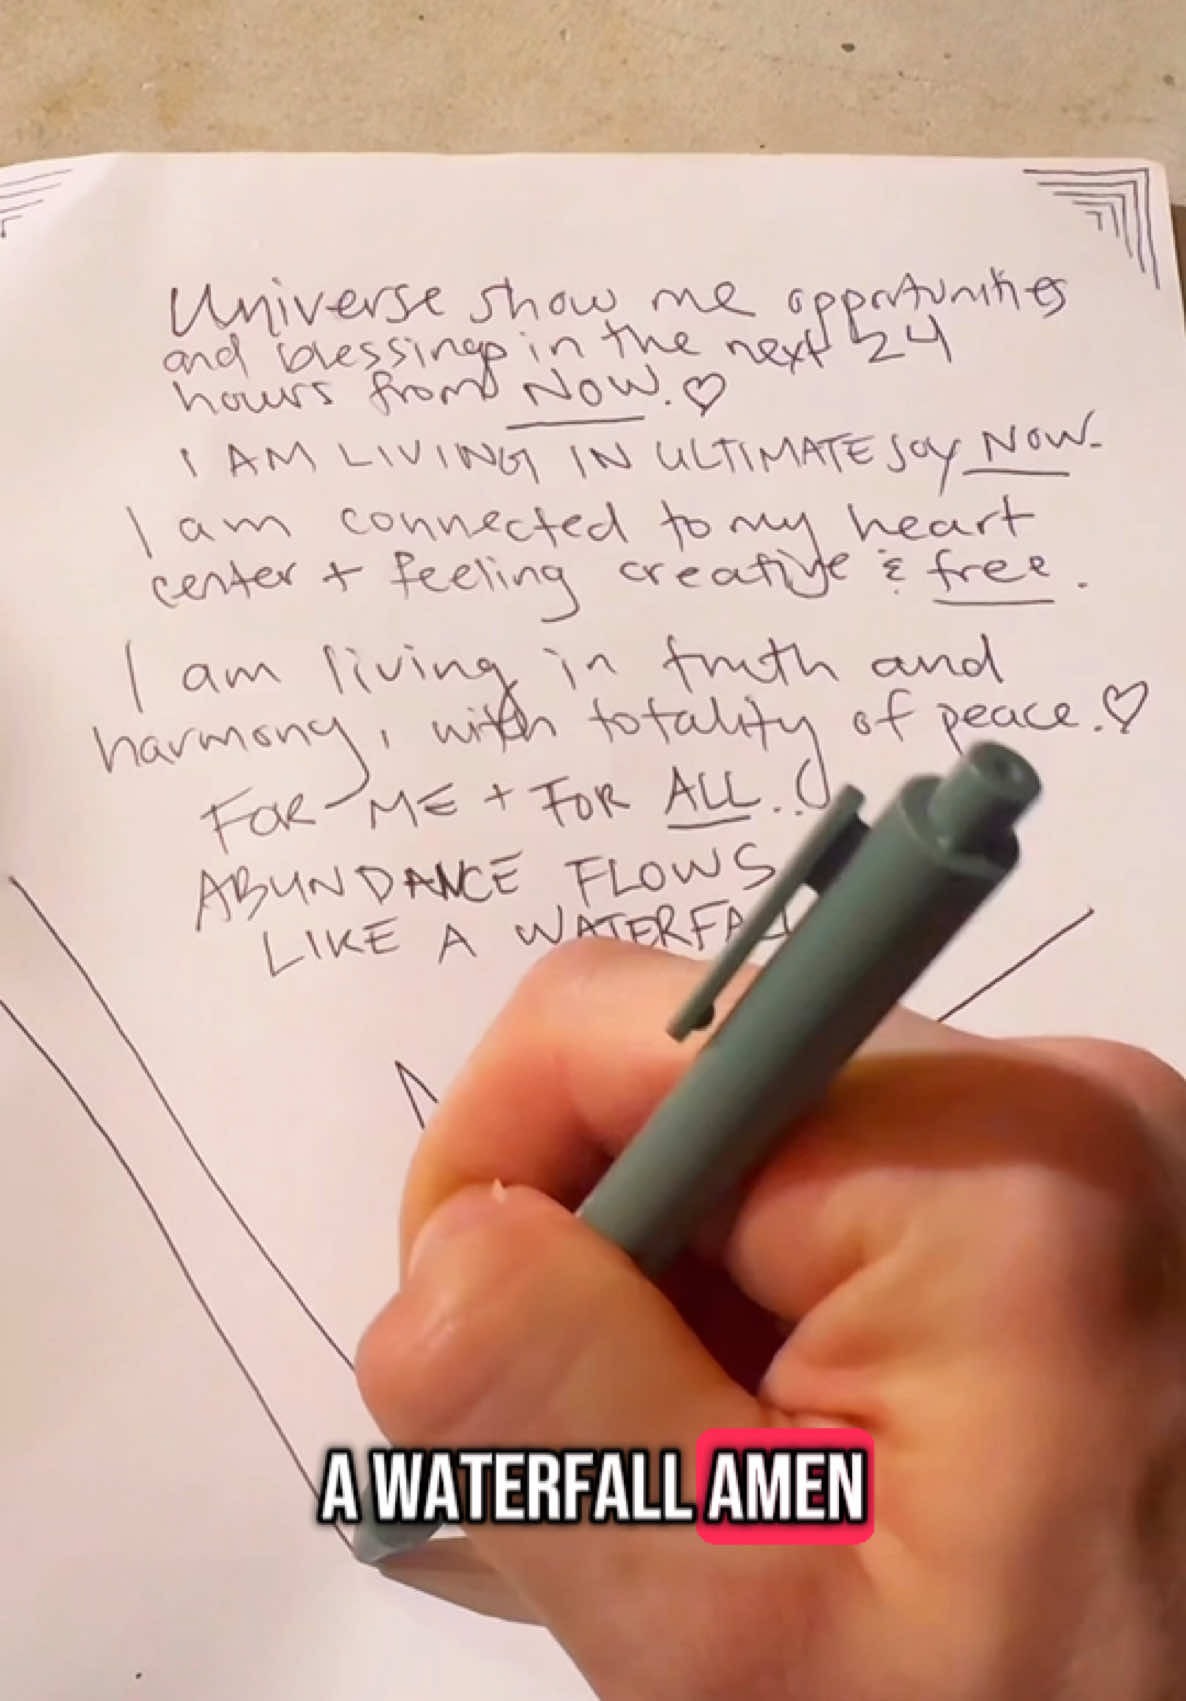 Universe show me opportunities
and blessings in the next 24
hours from NOW. ♡
I AM LIVING IN ULTIMATE JOY NOW.
I am connected to my heart
center + feeling creative & free.
I am living in truth and
harmony, with totality of peace. ♡
FOR ME + FOR ALL.
ABUNDANCE FLOWS
LIKE A WATERFALL
A WATERFALL AMEN